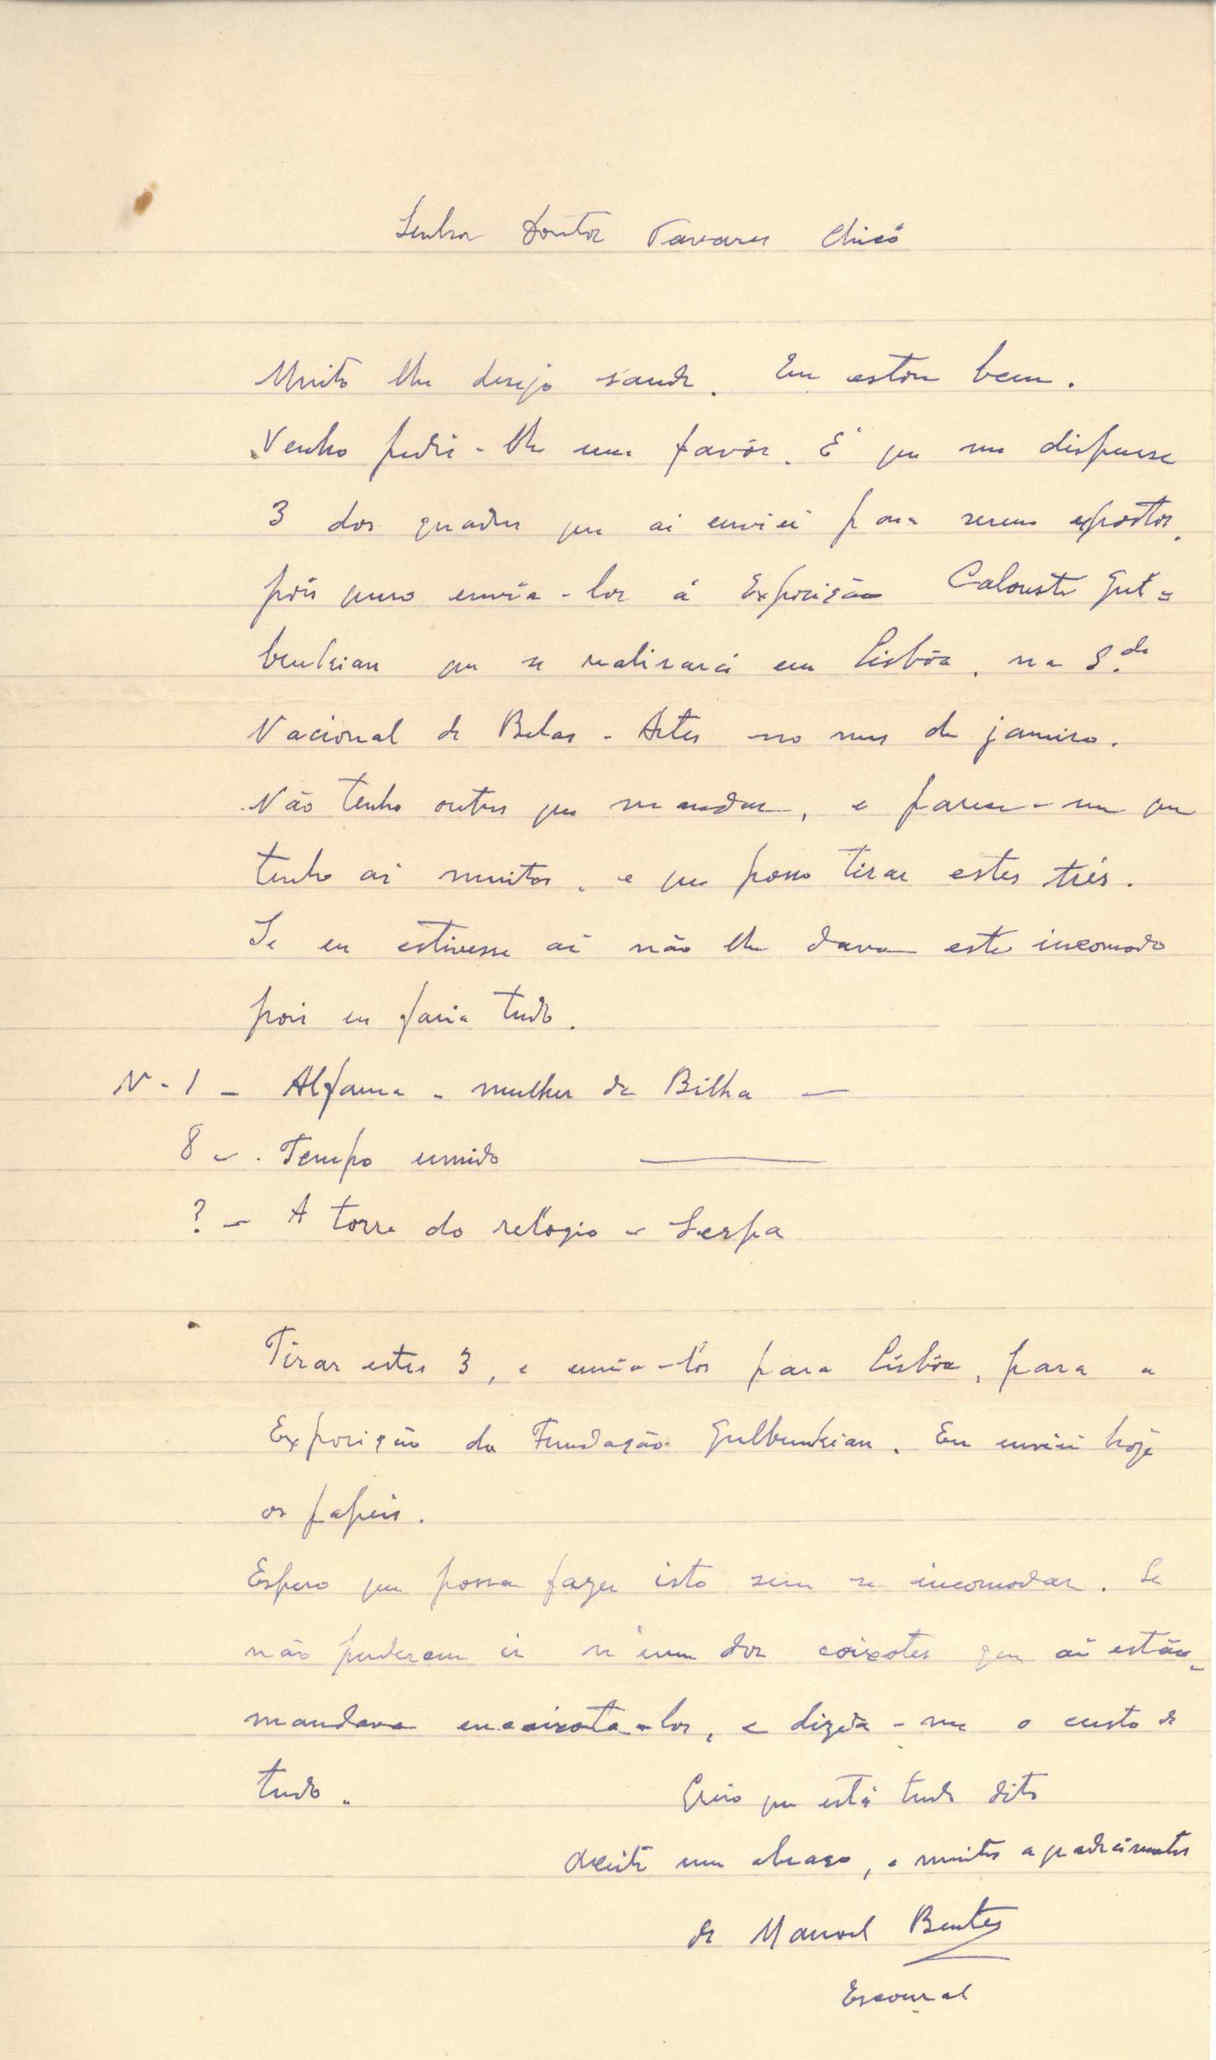 Senhor Doutor Tavares Chicó
Muito lhe desejo saude. Eu estou bem.
Venho pedir-lhe um favôr. É que me dispense
3 dos quadros que ai enviei para serem expostos,
pois quero envia-los á Exposição Calouste Gul=
benkian que se realisará em Lisbôa, na S.de
Nacional de Belas-Artes no mes de janeiro.
Não tenho outros que mandar, e parece-me que
tenho ai muitos, e que posso tirar estes três.
Se eu estivesse ai não lhe dava este incomodo
pois eu faria tudo.
Nº-1 - Alfama - mulher da Bilha —
8 - Tempo umido —
? - A torre do relogio - Serpa
Tirar estes 3, e envia-los para Lisbôa, para a
Exposição da Fundação Gulbenkian. Eu enviei hoje
os papeis.
Espero que possa fazer isto sem se incomodar. Se
não puderem ir n'um dos caixotes que ai estão,
mandava encaixota-los, e dizia-me o custo de
tudo.
Creio que está tudo dito
Aceite um abraço, e muitos agradecimentos
de Manoel Bentes
Escoural